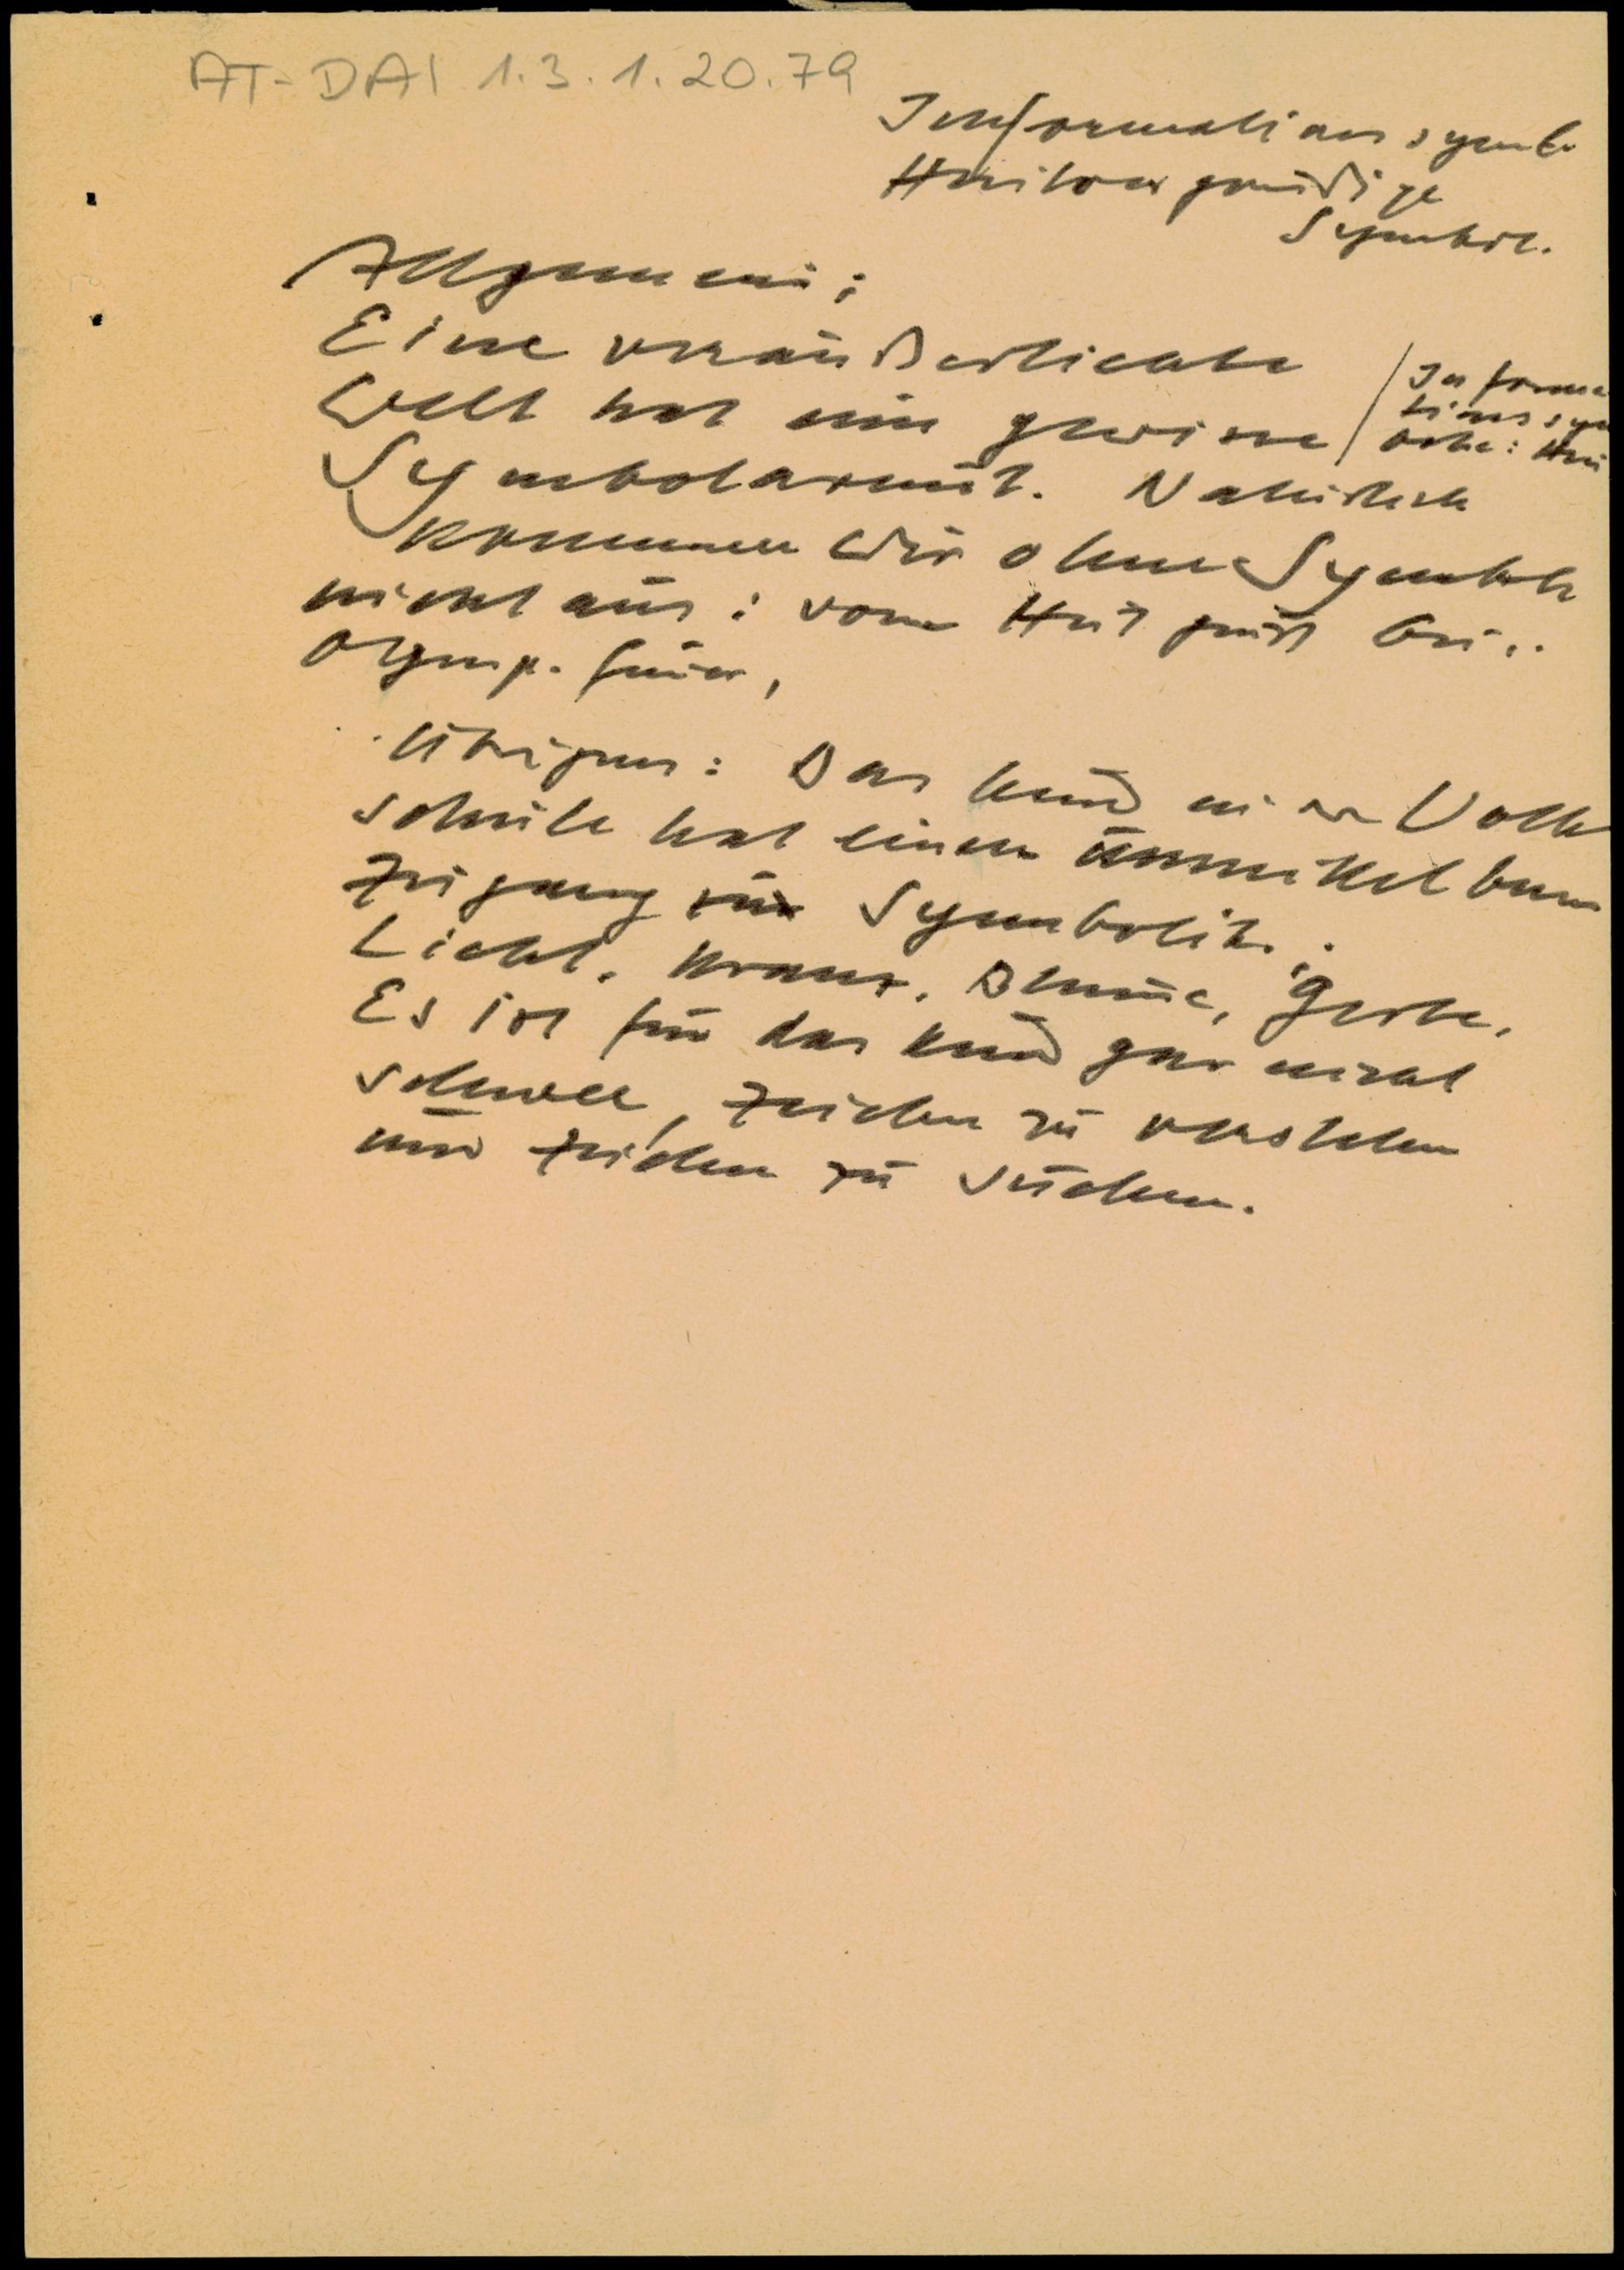 AT-DAI 1.3.1.20.79
Informationssymb.
Hintergründige
Symbole.
Allgemein:
Eine veräußerlichte
Welt hat eine gewisse
/ Informa
tionssym
bole:
Symbolarmut. Natürlich
kommen wir ohne Symbole
nicht aus: vom Hut
Olymp. Feuer,
Übrigens: Das Kind in der Volks
schule hat einen unmittelbaren
Zugang zur Symbolik.
Licht. Kranz. Blume, Garbe.
Es ist für das Kind gar nicht
schwer, Zeichen zu verstehen
und Zeichen zu suchen.